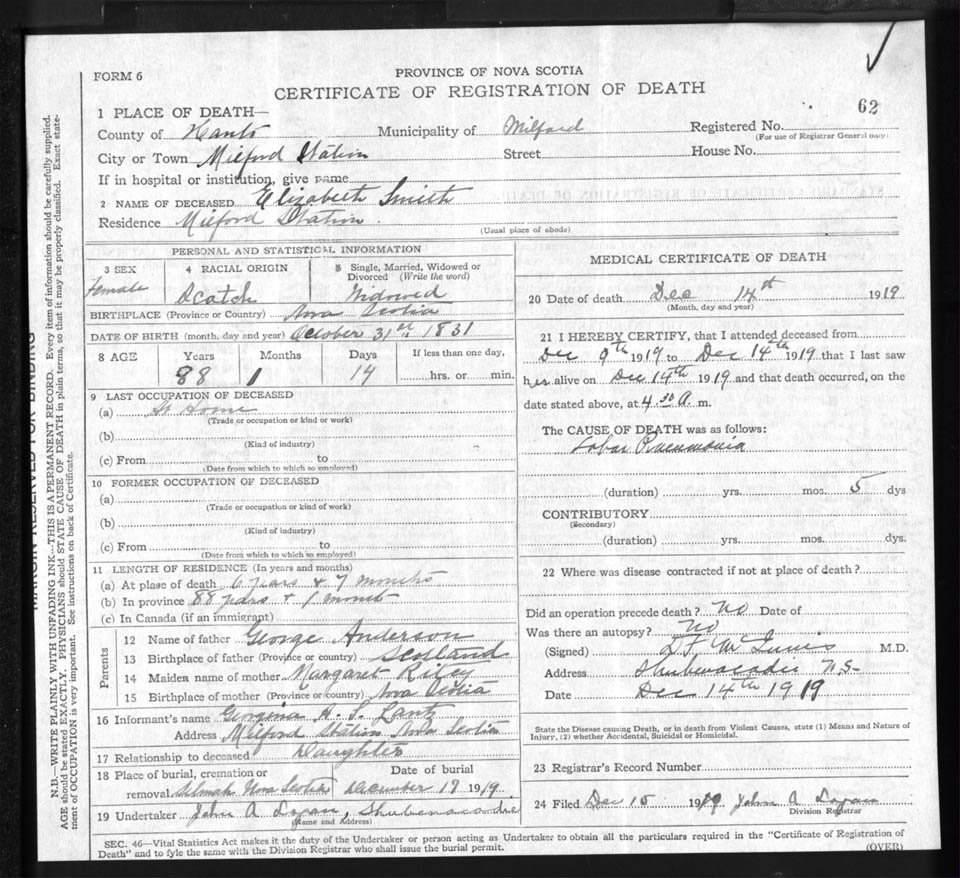 FORM 6
PROVINCE OF NOVA SCOTIA
CERTIFICATE OF REGISTRATION OF DEATH
62
1 PLACE OF DEATH—
County of Hants Municipality of Milford Registered No.
(For use of Registrar General only)
City or Town Milford Station Street House No.
If in hospital or institution, give name
2 NAME OF DECEASED Elizabeth Smith
Residence Milford Station
(Usual place of abode)
PERSONAL AND STATISTICAL INFORMATION
3 SEX 4 RACIAL ORIGIN 5 Single, Married, Widowed or
Divorced (Write the word)
Female Scotch Widowed
BIRTHPLACE (Province or Country) Nova Scotia
DATE OF BIRTH (month, day and year) October 31st 1831
8 AGE Years Months Days If less than one day,
88 1 14 hrs. or min.
9 LAST OCCUPATION OF DECEASED
(a) At Home
(Trade or occupation or kind of work)
(b)
(Kind of industry)
(c) From to
(Date from which to which so employed)
10 FORMER OCCUPATION OF DECEASED
(a)
(Trade or occupation or kind of work)
(b)
(Kind of industry)
(c) From to
(Date from which to which so employed)
11 LENGTH OF RESIDENCE (In years and months)
(a) At plase of death 6 years & 7 months
(b) In province 88 years & 1 month
(c) In Canada (if an immigrant)
Parents
12 Name of father George Anderson
13 Birthplace of father (Province or country) Scotland
14 Maiden name of mother Margaret Riley
15 Birthplace of mother (Province or country) Nova Scotia
16 Informant's name Georgina H. S. Lantz
Address Milford Station Nova Scotia
17 Relationship to deceased Daughter
18 Place of burial, cremation or Date of burial
removal Nova Scotia December 17 1919.
19 Undertaker John A Logan, Shubenacadie
(Name and Address)
MEDICAL CERTIFICATE OF DEATH
20 Date of death Dec 14th 1919.
(Month, day and year)
21 I HEREBY CERTIFY, that I attended deceased from
Dec 9th 1919 to Dec 14th 1919 that I last saw
her alive on Dec 14th 1919 and that death occurred, on the
date stated above, at 4 30 A. m.
The CAUSE OF DEATH was as follows:
Lobar Pneumonia
(duration) yrs. mos. 5 dys
CONTRIBUTORY
(Secondary)
(duration) yrs. mos. dys.
22 Where was disease contracted if not at place of death?
Did an operation precede death? No Date of
Was there an autopsy? No
(Signed) M.D.
Address Shubenacadie N.S.
Date Dec 14th 1919
State the Disease causing Death, or in death from Violent Causes, state (1) Means and Nature of
Injury, (2) whether Accidental, Suicidal or Homicidal.
23 Registrar's Record Number
24 Filed Dec 15 1919 John A Logan
Division Registrar
SEC. 46—Vital Statistics Act makes it the duty of the Undertaker or person acting as Undertaker to obtain all the particulars required in the "Certificate of Registration of
Death" and to fyle the same with the Division Registrar who shall issue the burial permit.
(OVER)
MARGIN RESERVED FOR BINDING
N.B.—WRITE PLAINLY WITH UNFADING INK—THIS IS A PERMANENT RECORD. Every item of information should be carefully supplied.
AGE should be stated EXACTLY. PHYSICIANS should STATE CAUSE OF DEATH in plain terms, so that it may be properly classified. Exact state-
ment of OCCUPATION is very important. See instructions on back of Certificate.